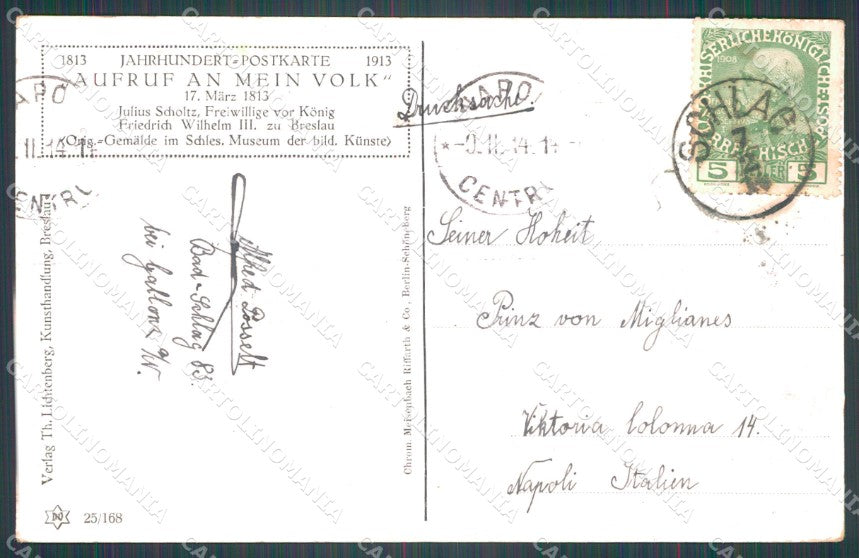 1813 JAHRHUNDERT-POSTKARTE 1913
"AUFRUF AN MEIN VOLK"
17. März 1813
Julius Scholtz, Freiwillige vor König
Friedrich Wilhelm III. zu Breslau
(Orig.-Gemälde im Schles. Museum der bild. Künste)
Drucksache.
NAPO
CENTR
SCHLAG
KAISERLICHE KÖNIGLICHE ÖSTERR
1908
5 5
Seiner Hoheit
Prinz von Miglianes
Viktoria Colonna 14.
Napoli Italien
Alfred Posselt
Bad-Schlag 83.
bei Gablonz a/N.
Verlag Th. Lichtenberg, Kunsthandlung, Breslau
Chrom. Meisenbach Riffarth & Co. Berlin-Schöneberg
25/168
CARTOLINOMANIA